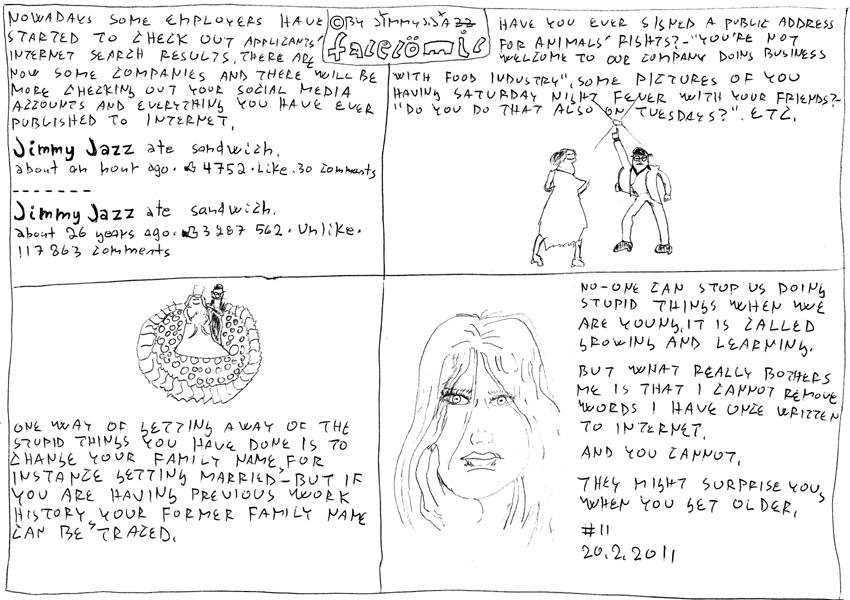 NOWADAYS SOME EMPLOYERS HAVE
STARTED TO CHECK OUT APPLICANTS'
INTERNET SEARCH RESULTS. THERE ARE
NOW SOME COMPANIES AND THERE WILL BE
MORE CHECKING OUT YOUR SOCIAL MEDIA
ACCOUNTS AND EVERYTHING YOU HAVE EVER
PUBLISHED TO INTERNET.
Jimmy Jazz ate sandwich.
about an hour ago. 4752. Like. 30 comments
-------
Jimmy Jazz ate sandwich.
about 26 years ago. 3 287 562. Unlike.
117 863 comments
© BY JIMMY JAZZ
HAVE YOU EVER SIGNED A PUBLIC ADDRESS
FOR ANIMALS' RIGHTS? - "YOU'RE NOT
WELCOME TO OUR COMPANY DOING BUSINESS
WITH FOOD INDUSTRY". SOME PICTURES OF YOU
HAVING SATURDAY NIGHT FEVER WITH YOUR FRIENDS? -
"DO YOU DO THAT ALSO ON TUESDAYS?". ETC.
ONE WAY OF GETTING AWAY OF THE
STUPID THINGS YOU HAVE DONE IS TO
CHANGE YOUR FAMILY NAME, FOR
INSTANCE GETTING MARRIED - BUT IF
YOU ARE HAVING PREVIOUS WORK
HISTORY, YOUR FORMER FAMILY NAME
CAN BE TRACED.
NO-ONE CAN STOP US DOING
STUPID THINGS WHEN WE
ARE YOUNG, IT IS CALLED
GROWING AND LEARNING.
BUT WHAT REALLY BOTHERS
ME IS THAT I CANNOT REMOVE
WORDS I HAVE ONCE WRITTEN
TO INTERNET.
AND YOU CANNOT.
THEY MIGHT SURPRISE YOU,
WHEN YOU GET OLDER.
#11
20.2.2011